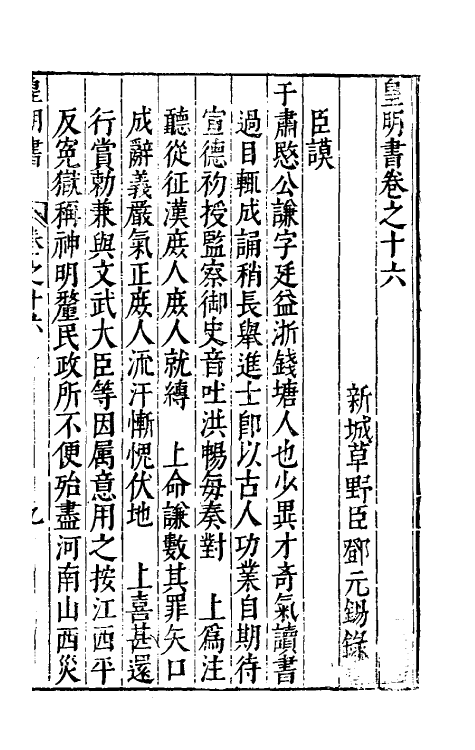 皇明書卷之十六
新城草野臣鄧元錫錄
臣謨
于肅愍公謙字廷益浙錢塘人也少異才奇氣讀書
過目輒成誦稍長舉進士卽以古人功業自期待
宣德初授監察御史音吐洪暢每奏對　上爲注
聽從征漢庶人庶人就縛　上命謙數其罪矢口
成辭義嚴氣正庶人流汗慚愧伏地　上喜甚還
行賞勑兼與文武大臣等因属意用之按江西平
反寃獄稱神明釐民政所不便殆盡河南山西災
皇明書　卷之十六